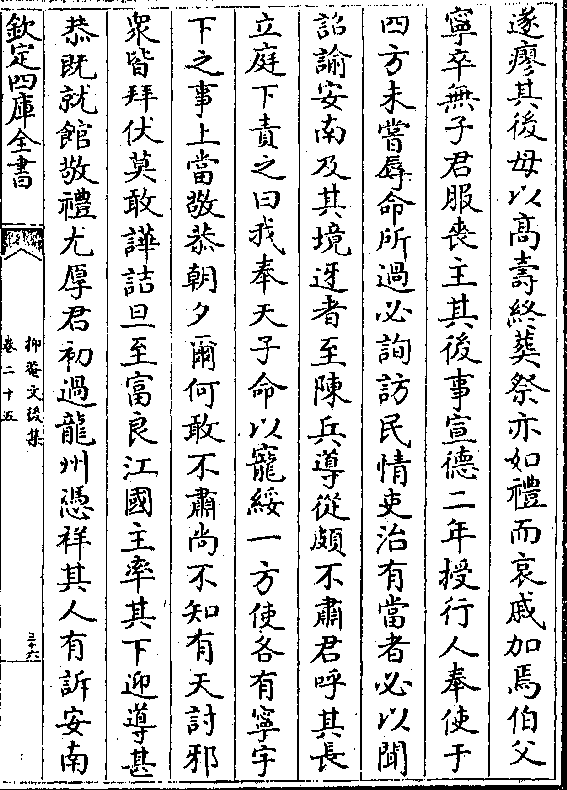 遂瘳其後母以髙壽終葬祭亦如禮而哀戚加焉伯父
寧卒無子君服喪主其後事宣德二年授行人奉使于
四方未嘗辱命所過必詢訪民情吏治有當者必以聞
詔諭安南及其境迓者至陳兵導從頗不肅君呼其長
立庭下責之曰我奉天子命以寵綏一方使各有寧宇
下之事上當敬恭朝夕爾何敢不肅尚不知有天討邪
衆皆拜伏莫敢譁詰旦至富良江國主率其下迎導甚
恭既就館敬禮尤厚君初過龍州憑祥其人有訴安南
欽定四庫全書
抑菴文後集
卷二十五
三十六